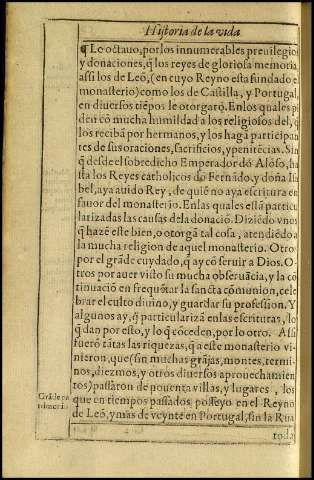 Historia de la vida
¶ Lo octauo, por los innumerables preuilegio
y donaciones, q̃ los reyes de gloriosa memoria
assi los de Leõ, (en cuyo Reyno esta fundado el
monasterio) como los de Castilla, y Portugal,
en diuersos tiẽpos le otorgarõ. En los quales pi
den cõ mucha humildad a los religiosos del, q̃
los recibã por hermanos, y los hagã participan
tes de sus oraciones, sacrificios, y penitẽcias. Sin
q̃ desde el sobredicho Emperador dõ Alõso, ha
sta los Reyes catholicos dõ Fernãdo, y doña Isa
bel, aya auido Rey, de quiẽ no aya escritura en
fauor del monasterio. En las quales estã particu
larizadas las causas de la donaciõ. Diziẽdo vnos
q̃ hazẽ este bien, o otorgã tal cosa, atendiẽdo a
la mucha religion de aquel monasterio. Otro
por el grãde cuydado, q̃ ay cõ seruir a Dios. O
tros por auer visto su mucha obseruãcia, y la cõ
tinuaciõ en frequẽtar la sancta cõmunion, cele
brar el culto diuino, y guardar su profession. Y
algunos ay, q̃ particularizã en las escrituras, lo
q̃ dan por esto, y lo q̃ cõceden, por lo otro. Assi
fuerõ tãtas las riquezas, q̃ a este monasterio vi
nieron, que (sin muchas grãjas, montes, termi
nos, diezmos, y otros diuersos aprouechamien
tos) passarõn de nouenta villas, y lugares, los
que en tiempos passados posseyo en el Reyno
de Leõ, y mas de veynte en Portugal, sin la Rua
Grãde pa
trimonio
toda